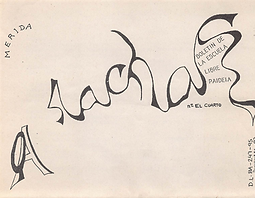 MERIDA
A rachas
BOLETIN DE
LA ESCUELA
LIBRE
PAIDEIA
nº EL CUARTO
D.L.-BA-247-95